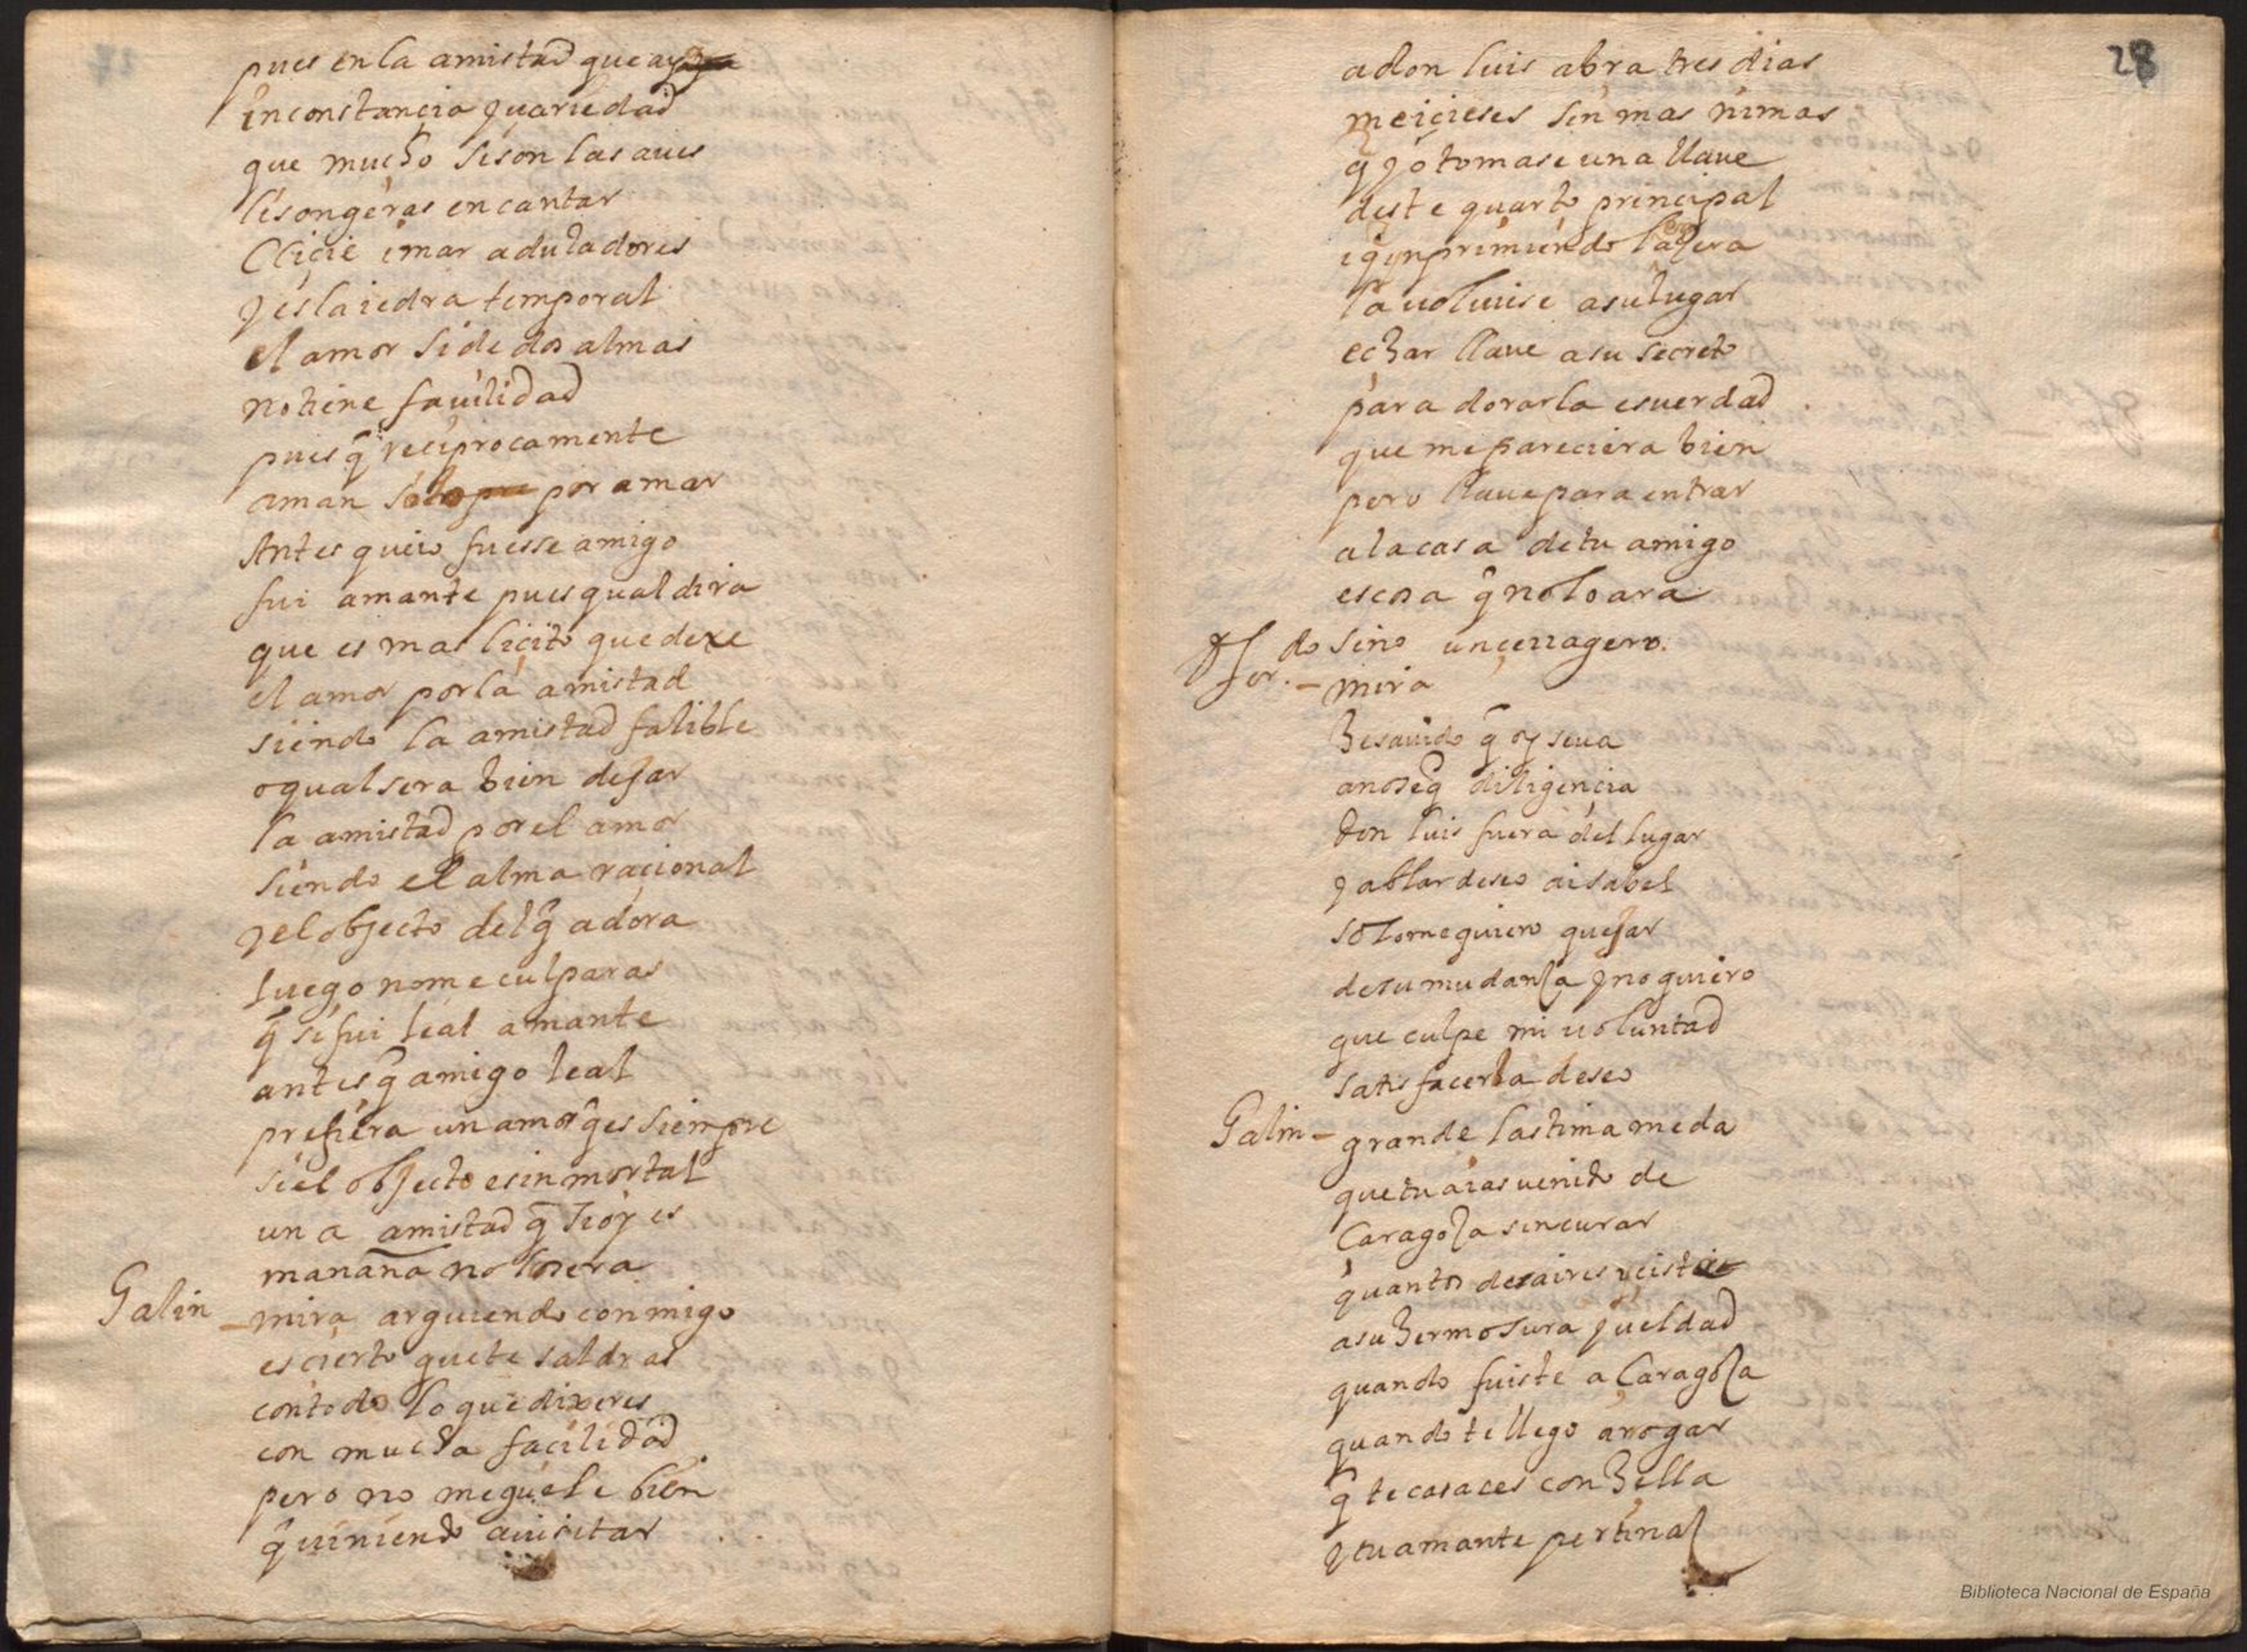 pues en la amistad que ay
inconstancia y uariedad
que mucho si son las aues
lisongeras en cantar
Clicie i mar aduladores
y es la iedra temporal
el amor si de dos almas
no tiene facilidad
pues q̃ reciprocamente
aman solo por amar
Antes que io fuesse amigo
fui amante pues qual dira
que es mas licito que dexe
el amor por la amistad
siendo la amistad falible
o qual sera bien dejar
la amistad por el amor
siendo el alma racional
y el objecto del q̃ adora
luego no me culparas
q̃ si fui leal amante
antes q̃ amigo leal
prefiera un amor q̃ es siempre
si el objecto es inmortal
una amistad q̃ si oy es
mañana no lo sera
Galin — mira arguiendo conmigo
es cierto que te saldras
con todo lo que dixeres
con mucha facilidad
pero no me guele bien
q̃ uiniendo a uisitar
28
a don luis abra tres dias
me icieses sin mas ni mas
q̃ yo tomase una llaue
deste quarto principal
i q̃ ynprimiendo la en çera
la uoluiese a su lugar
echar llaue a su secreto
para dorarla es uerdad
que me pareciera bien
pero llaue para entrar
a la casa de tu amigo
es cosa q̃ no lo ara
sino un cerragero.
do fer. — mira
he sauido q̃ oy se ua
a no se q̃ diligencia
don luis fuera del lugar
y ablar deseo a isabel
solo me quiero quejar
de su mudança y no quiero
que culpe mi uoluntad
satisfacerla deseo
Galin — grande lastima me da
que tu aias uenido de
Caragoça sin curar
quantos desaires iciste
a su hermosura y ueldad
quando fuiste a Caragoça
quando te llego a rogar
q̃ te casaces con hella
y tu amante pertinaz
Biblioteca Nacional de España